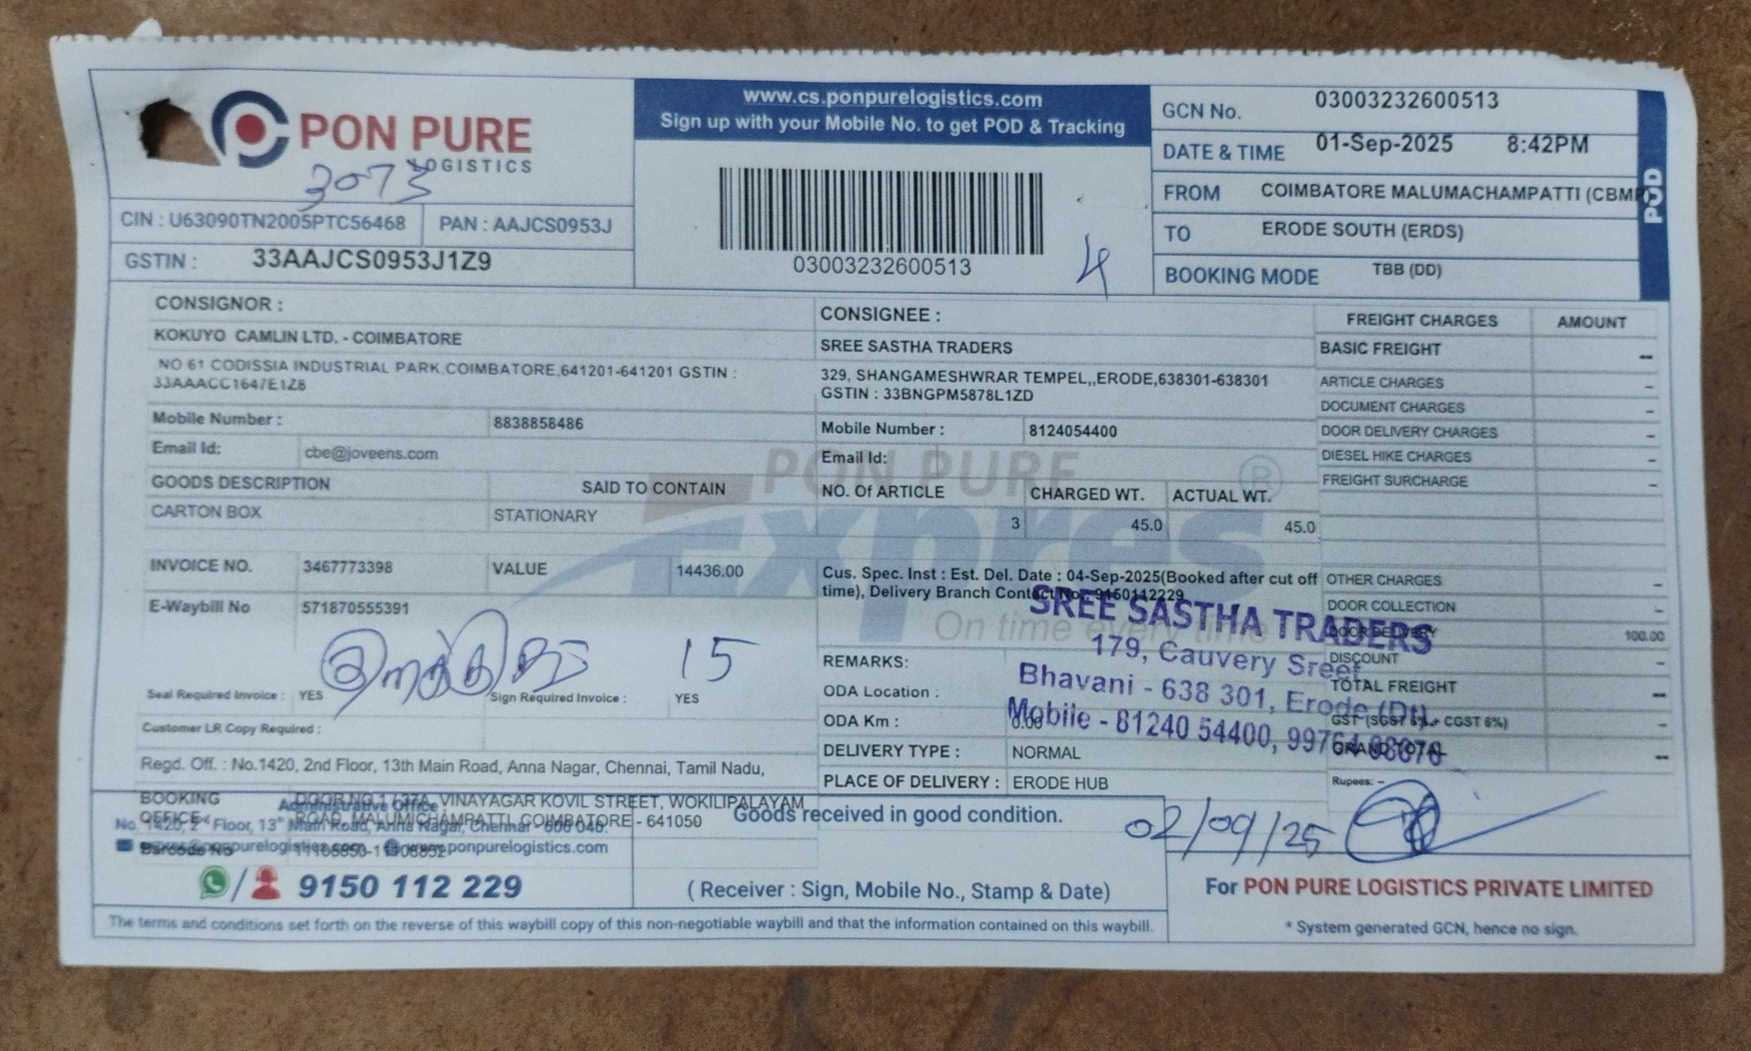 PON PURE
LOGISTICS
3073
CIN : U63090TN2005PTC56468 PAN : AAJCS0953J
GSTIN : 33AAJCS0953J1Z9
www.cs.ponpurelogistics.com
Sign up with your Mobile No. to get POD & Tracking
03003232600513
4
GCN No. 03003232600513
DATE & TIME 01-Sep-2025 8:42PM
FROM COIMBATORE MALUMACHAMPATTI (CBMP)
TO ERODE SOUTH (ERDS)
BOOKING MODE TBB (DD)
POD
CONSIGNOR :
KOKUYO CAMLIN LTD. - COIMBATORE
NO 61 CODISSIA INDUSTRIAL PARK,COIMBATORE,641201-641201 GSTIN :
33AAACC1647E1Z8
Mobile Number : 8838858486
Email Id: cbe@joveens.com
GOODS DESCRIPTION SAID TO CONTAIN
CARTON BOX STATIONARY
INVOICE NO. 3467773398 VALUE 14436.00
E-Waybill No 571870555391
15
Seal Required Invoice : YES Sign Required Invoice : YES
Customer LR Copy Required :
Regd. Off. : No.1420, 2nd Floor, 13th Main Road, Anna Nagar, Chennai, Tamil Nadu,
CONSIGNEE :
SREE SASTHA TRADERS
329, SHANGAMESHWRAR TEMPEL,,ERODE,638301-638301
GSTIN : 33BNGPM5878L1ZD
Mobile Number : 8124054400
Email Id:
PON PURE
Expres
On time every time
NO. Of ARTICLE CHARGED WT. ACTUAL WT.
3 45.0 45.0
Cus. Spec. Inst : Est. Del. Date : 04-Sep-2025(Booked after cut off
time), Delivery Branch Contact No : 9150112229
REMARKS:
ODA Location :
ODA Km : 0.00
DELIVERY TYPE : NORMAL
PLACE OF DELIVERY : ERODE HUB
SREE SASTHA TRADERS
179, Cauvery Sreet
Bhavani - 638 301, Erode (Dt).
Mobile - 81240 54400,
FREIGHT CHARGES AMOUNT
BASIC FREIGHT --
ARTICLE CHARGES -
DOCUMENT CHARGES -
DOOR DELIVERY CHARGES -
DIESEL HIKE CHARGES -
FREIGHT SURCHARGE -
OTHER CHARGES -
DOOR COLLECTION -
DOOR DELIVERY 100.00
DISCOUNT -
TOTAL FREIGHT --
GST (SGST 6% + CGST 6%) -
GRAND TOTAL --
Rupees: --
BOOKING OFFICE : DOOR NO.1 / 37A, VINAYAGAR KOVIL STREET, WOKILIPALAYAM
ROAD, MALUMICHAMPATTI, COIMBATORE - 641050
Administrative Office
No. 1420, 2nd Floor, 13th Main Road, Anna Nagar, Chennai - 600 040.
Barcode No
www.ponpurelogistics.com
9150 112 229
Goods received in good condition.
(Receiver : Sign, Mobile No., Stamp & Date)
02/09/25
For PON PURE LOGISTICS PRIVATE LIMITED
* System generated GCN, hence no sign.
The terms and conditions set forth on the reverse of this waybill copy of this non-negotiable waybill and that the information contained on this waybill.